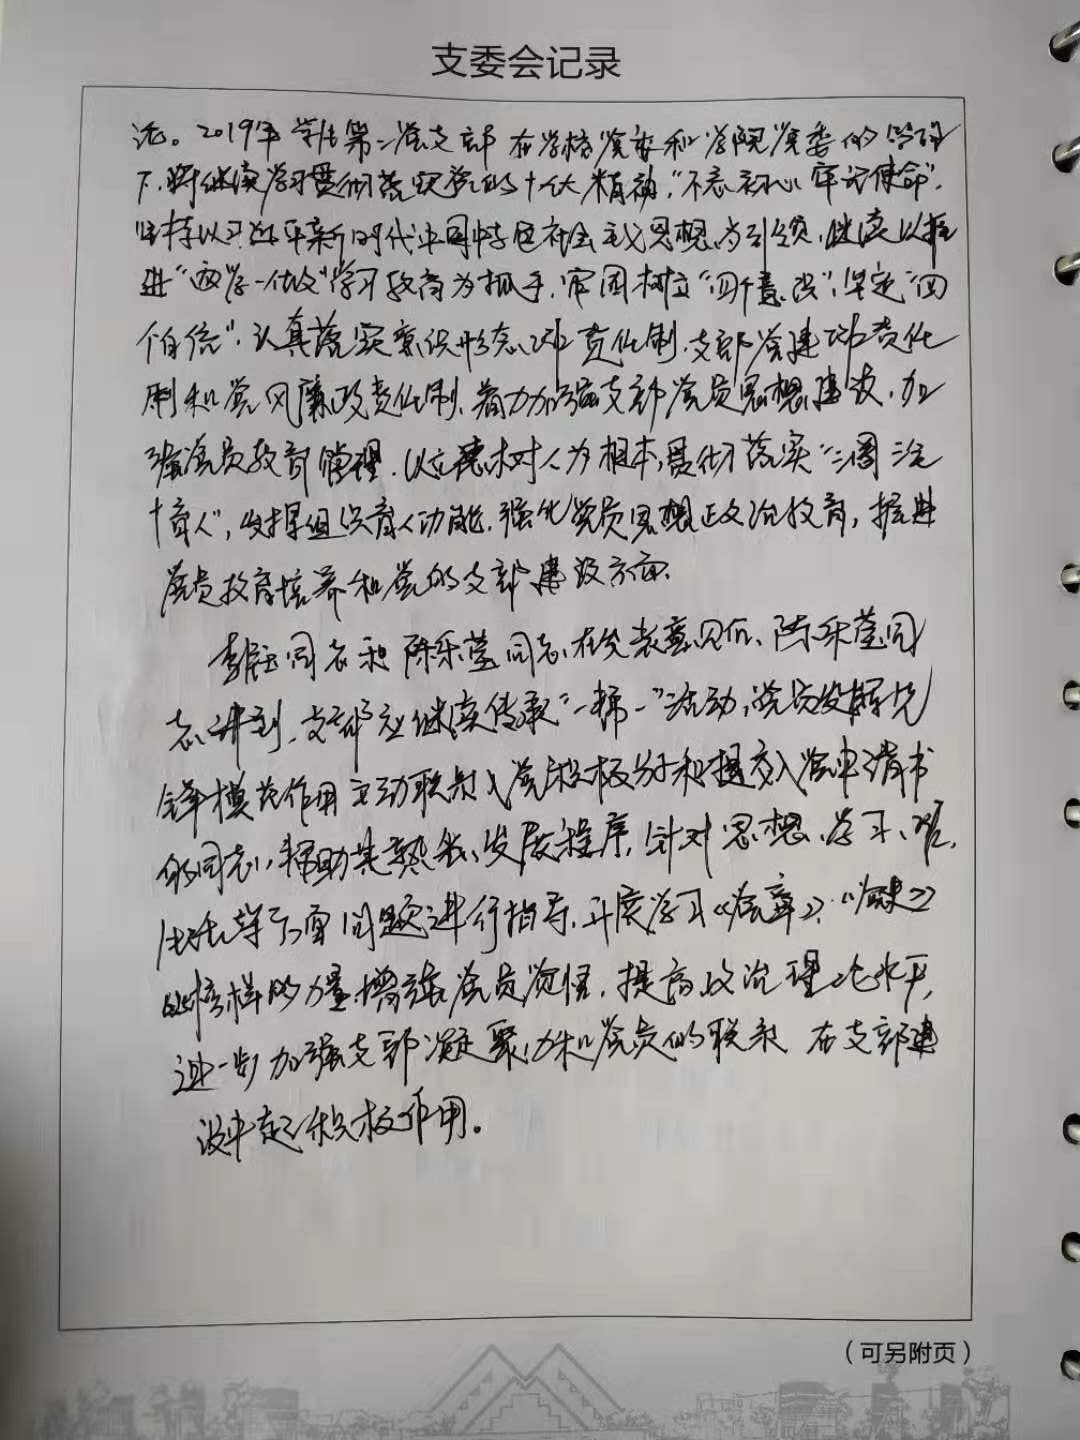 支委会记录
论。2019年学生第二党支部在学校党委和学院党委的领导
下,将继续学习贯彻落实党的十九大精神,“不忘初心牢记使命”,
坚持以习近平新时代中国特色社会主义思想为引领,继续以推
进“两学一做”学习教育为抓手,牢固树立“四个意识”,坚定“四
个自信”,认真落实意识形态工作责任制,支部党建工作责任
制和党风廉政责任制,着力加强支部党员思想建设,加
强党员教育管理,以立德树人为根本,贯彻落实“三圈三全
十育人”,发挥组织育人功能,强化党员思想政治教育,推进
党员教育培养和党的支部建设方面、
同志和陈乐莹同志、在发表意见后、陈乐莹同
志讲到,支部应继续传承“一带一”活动,党员发挥先
锋模范作用主动联系入党积极分子和提交入党申请书
的同志,帮助其熟悉发展程序,针对思想、学习、
生活等方面问题进行指导,开展学习《党章》、
榜样的力量增强党员党性,提高政治理论水平,
进一步加强支部凝聚力和党员的联系 在支部建
设中起积极作用。
(可另附页)